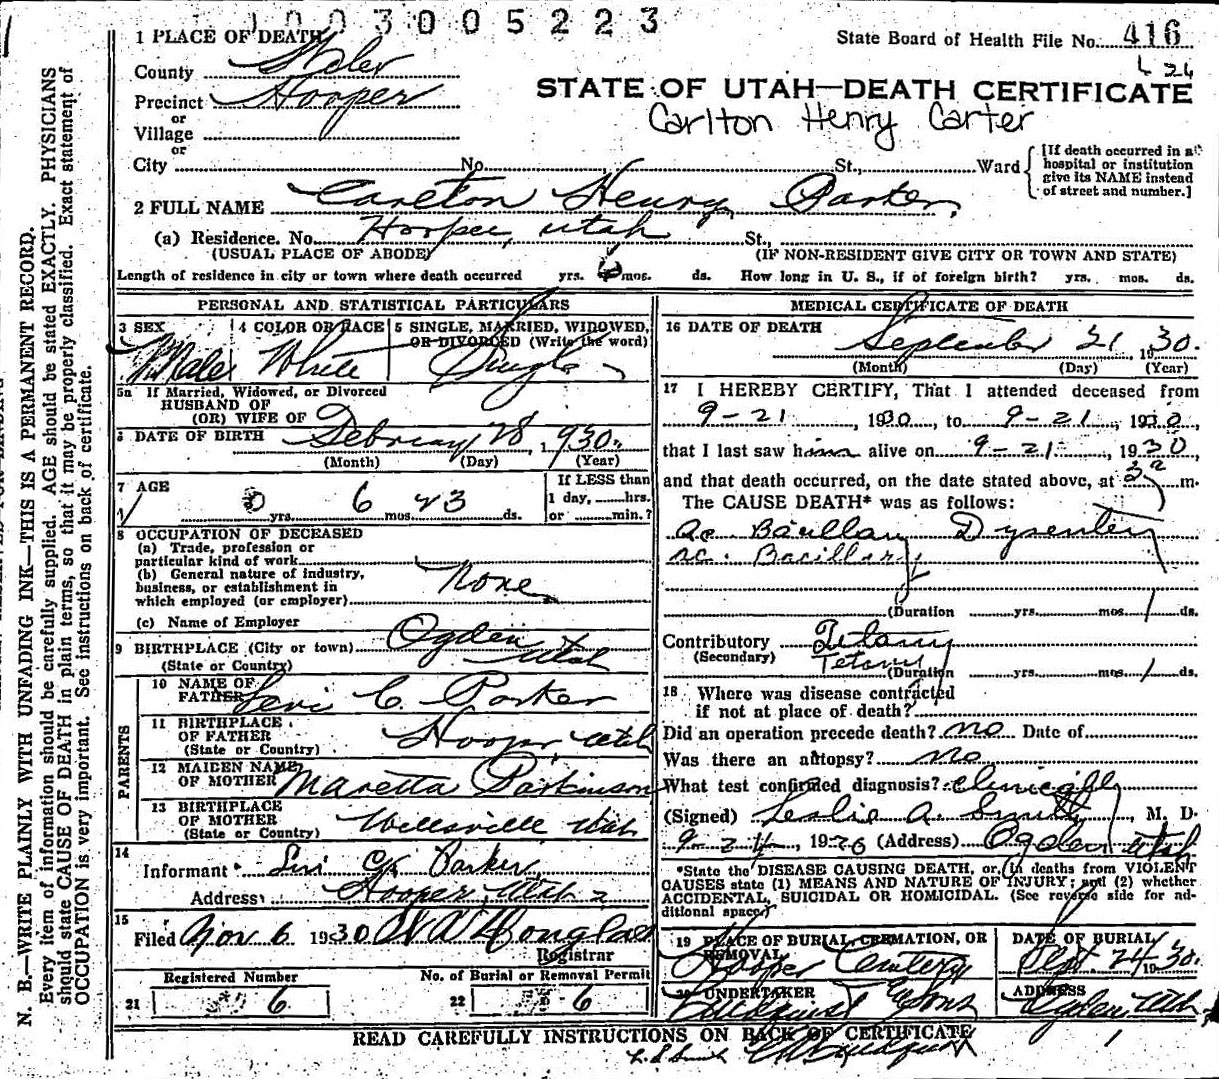 1003005223
1 PLACE OF DEATH
State Board of Health File No. 416
L 26
County Weber
STATE OF UTAH—DEATH CERTIFICATE
Precinct Hooper
Carlton Henry Carter
or
Village
or
City No. St., Ward
[If death occurred in a hospital or institution give its NAME instead of street and number.]
2 FULL NAME Carlton Henry Parker.
(a) Residence. No. Hooper, Utah St.,
(USUAL PLACE OF ABODE) (IF NON-RESIDENT GIVE CITY OR TOWN AND STATE)
Length of residence in city or town where death occurred yrs. 6 mos. ds. How long in U. S., if of foreign birth? yrs. mos. ds.
PERSONAL AND STATISTICAL PARTICULARS
3 SEX 4 COLOR OR RACE 5 SINGLE, MARRIED, WIDOWED,
OR DIVORCED (Write the word)
Male White Single
5a If Married, Widowed, or Divorced
HUSBAND OF
(OR) WIFE OF
6 DATE OF BIRTH February 28, 1930.
(Month) (Day) (Year)
7 AGE
If LESS than
0 yrs. 6 mos. 23 ds.
1 day, hrs.
or min.?
8 OCCUPATION OF DECEASED
(a) Trade, profession or
particular kind of work
(b) General nature of industry,
business, or establishment in
which employed (or employer)
None
(c) Name of Employer
9 BIRTHPLACE (City or town) Ogden
(State or Country) Utah
PARENTS
10 NAME OF
FATHER Levi C. Parker
11 BIRTHPLACE
OF FATHER
(State or Country) Hooper, Utah
12 MAIDEN NAME
OF MOTHER Maretta Parkinson
13 BIRTHPLACE
OF MOTHER
(State or Country) Wellsville Utah
14
Informant Levi C. Parker
Address Hooper, Utah
15
Filed Nov 6 1930
Registrar
Registered Number No. of Burial or Removal Permit
21 6 22 6
MEDICAL CERTIFICATE OF DEATH
16 DATE OF DEATH
September 21, 1930.
(Month) (Day) (Year)
17 I HEREBY CERTIFY, That I attended deceased from
9-21, 1930, to 9-21, 1930,
that I last saw him alive on 9-21, 1930,
and that death occurred, on the date stated above, at m.
The CAUSE DEATH* was as follows:
Ac. Bacillary Dysentery
ac. Bacillary
(Duration yrs. mos. 1 ds.
Contributory Tetany
(Secondary) Tetany
(Duration yrs. mos. 1 ds.
18 Where was disease contracted
if not at place of death?
Did an operation precede death? no Date of
Was there an autopsy? no
What test confirmed diagnosis? Clinically
(Signed) Leslie A. Smith, M. D.
9-24, 1930 (Address) Ogden Utah
*State the DISEASE CAUSING DEATH, or, in deaths from VIOLENT
CAUSES state (1) MEANS AND NATURE OF INJURY; and (2) whether
ACCIDENTAL, SUICIDAL OR HOMICIDAL. (See reverse side for ad-
ditional space.)
19 PLACE OF BURIAL, CREMATION, OR
REMOVAL
DATE OF BURIAL
Hooper Cemetery Sept. 24 1930.
20 UNDERTAKER ADDRESS
& Sons Ogden, Utah,
READ CAREFULLY INSTRUCTIONS ON BACK OF CERTIFICATE
N. B.—WRITE PLAINLY WITH UNFADING INK—THIS IS A PERMANENT RECORD.
Every item of information should be carefully supplied. AGE should be stated EXACTLY. PHYSICIANS
should state CAUSE OF DEATH in plain terms, so that it may be properly classified. Exact statement of
OCCUPATION is very important. See instructions on back of certificate.